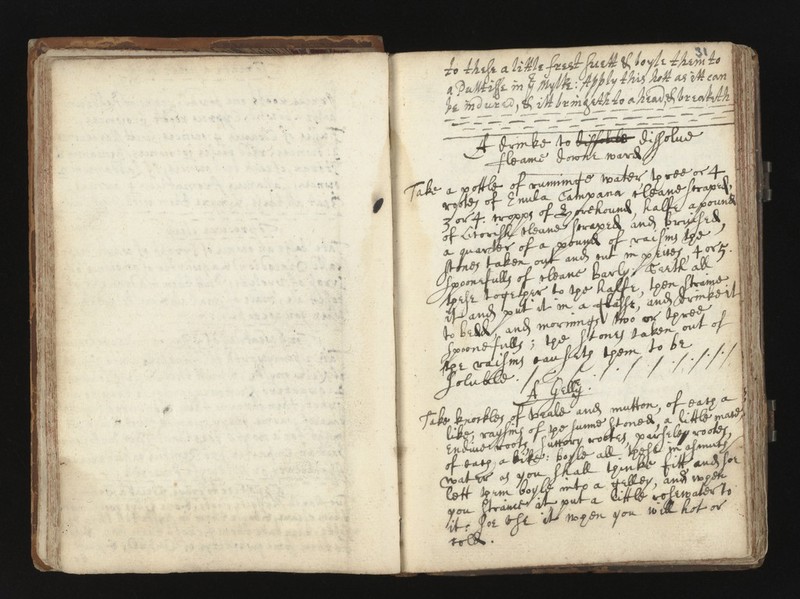 31
to these a little fresh suett & boyle them to
a Pultisse in ye mylke: Apply this hott as itt can
be indured, & itt bringeth to a head, & breaketh
A drinke to dissolve
fleame downe ward
Take a pottle of runninge water three or 4
rootes of Enula Campana cleane scraped,
3 or 4 cropps of Horehound, halfe a pound
of Licorish cleane scraped and bruised,
a quarter of a pound of raisins the
stones taken out and cut in peices, 4 or 5
spoonefulls of cleane Barly, seeth all
these together to the halfe, then straine
it and put it in a glasse, and drinke it
to bedd and mornings two or three
spoonefulls; the stones taken out of
the raisins causeth them to be
soluble.
A Gelly.
Take knockles of veale and mutton, of each a
like, raysins of the sunne stoned, a little mace,
Endive roots, Suttory rootes, parseley rootes,
of each a like: boyle all these in asmuch
water as you shall thinke fitt and soe
lett them boyle into a gelley, and when
you straine it put a little rosewater to
it. Soe use it when you will hot or
cold.